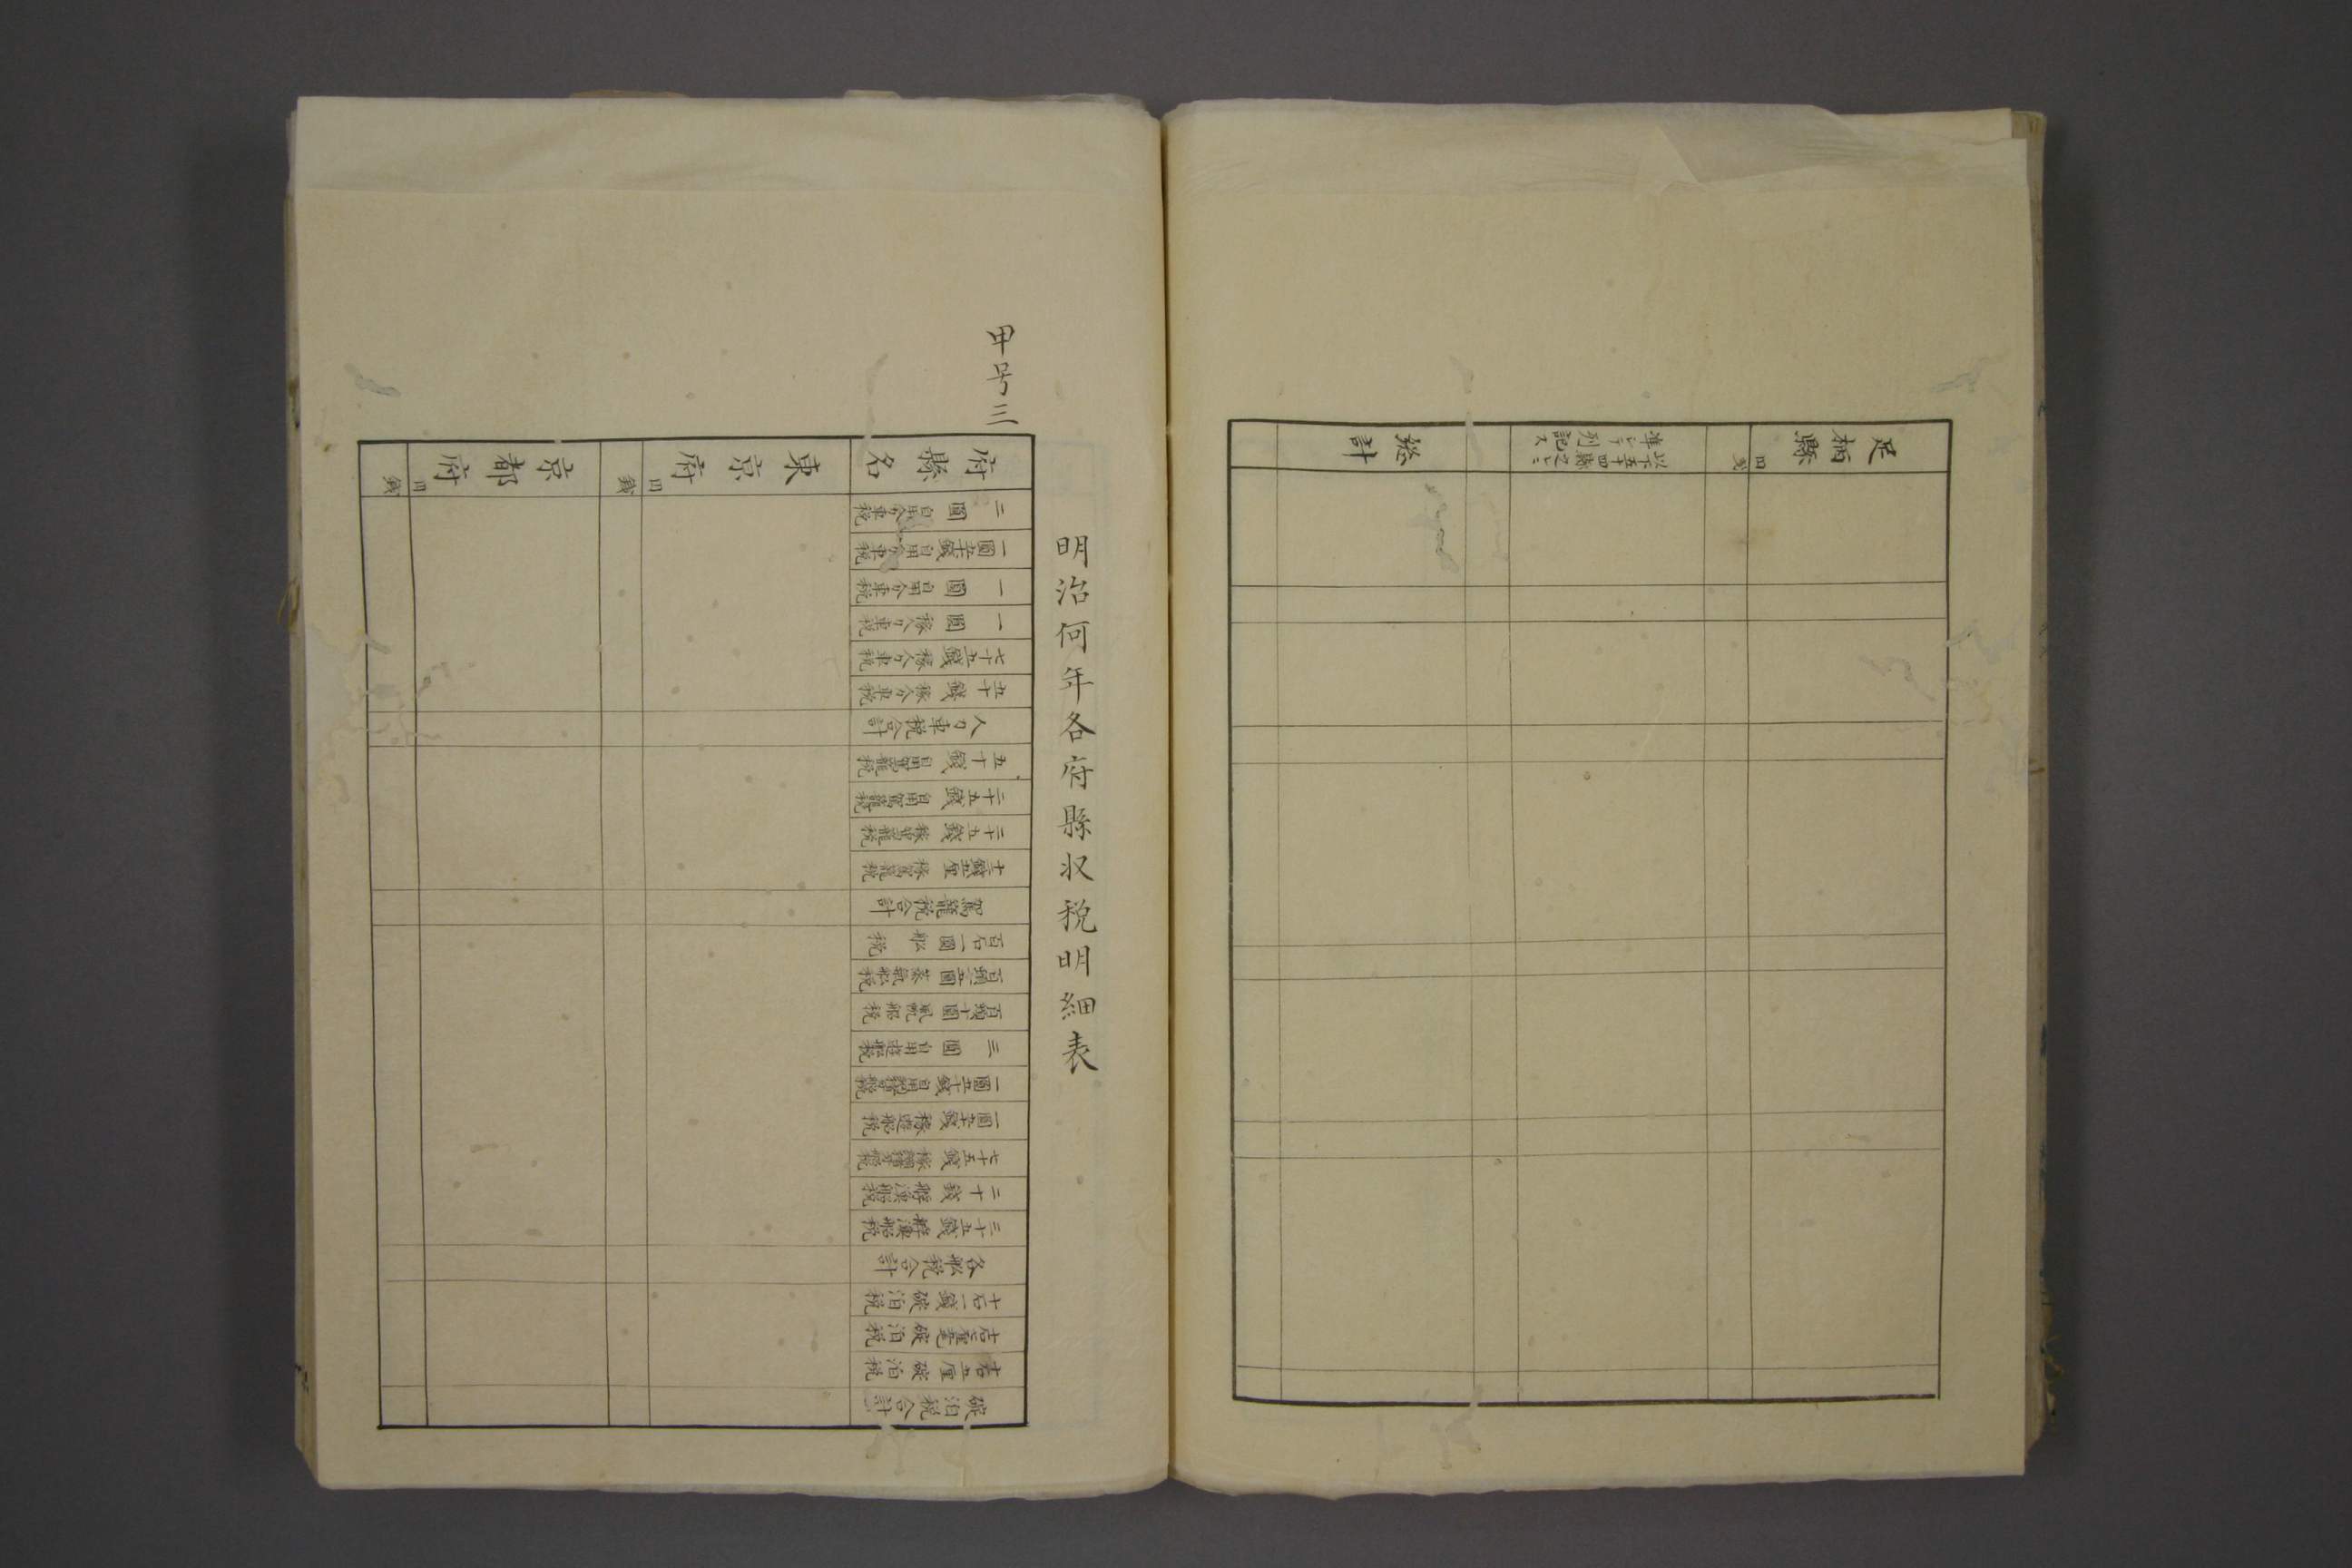 足柄縣
以下五十四縣之ニ
準シテ列記ス
総計
甲号三
明治何年各府縣収税明細表
府縣名
二圓自用人力車税
一圓五十錢自用人力車税
一圓自用人力車税
一圓稼人力車税
七十五錢稼人力車税
五十錢稼人力車税
人力車税合計
五十錢自用駕籠税
二十五錢自用駕籠税
二十五錢稼駕籠税
十二錢五厘稼駕籠税
駕籠税合計
百石一圓舩税
百噸十五圓蒸氣舩税
百噸十圓風帆舩税
三圓自用遊舩税
一圓五十錢自用
一圓五十錢稼遊舩税
七十五錢稼
二十錢艀漁舩税
三十五錢艀漁舩税
各舩税合計
十石一錢碇泊税
碇泊税
十石五厘碇泊税
碇泊税合計
東京府
円
錢
京都府
円
錢